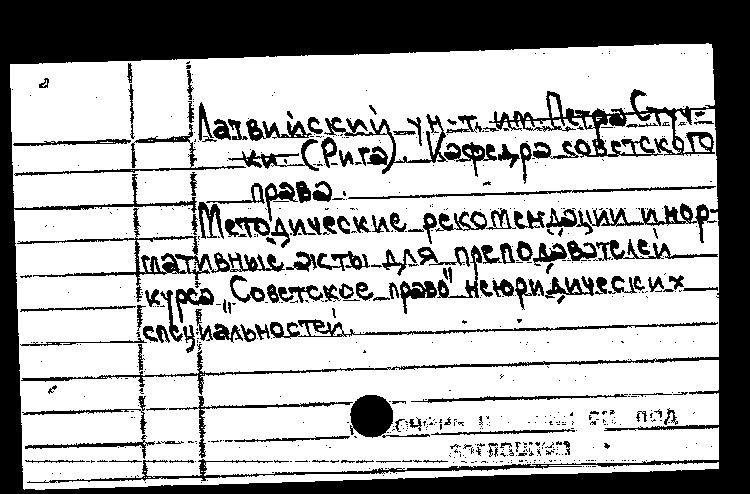 Латвийский ун-т. им. Петра Стуч-
ки. (Рига). Кафедра советского
права.
Методические рекомендации и нор-
мативные акты для преподавателей
курса "Советское право" неюридических
специальностей.
под
заглавием